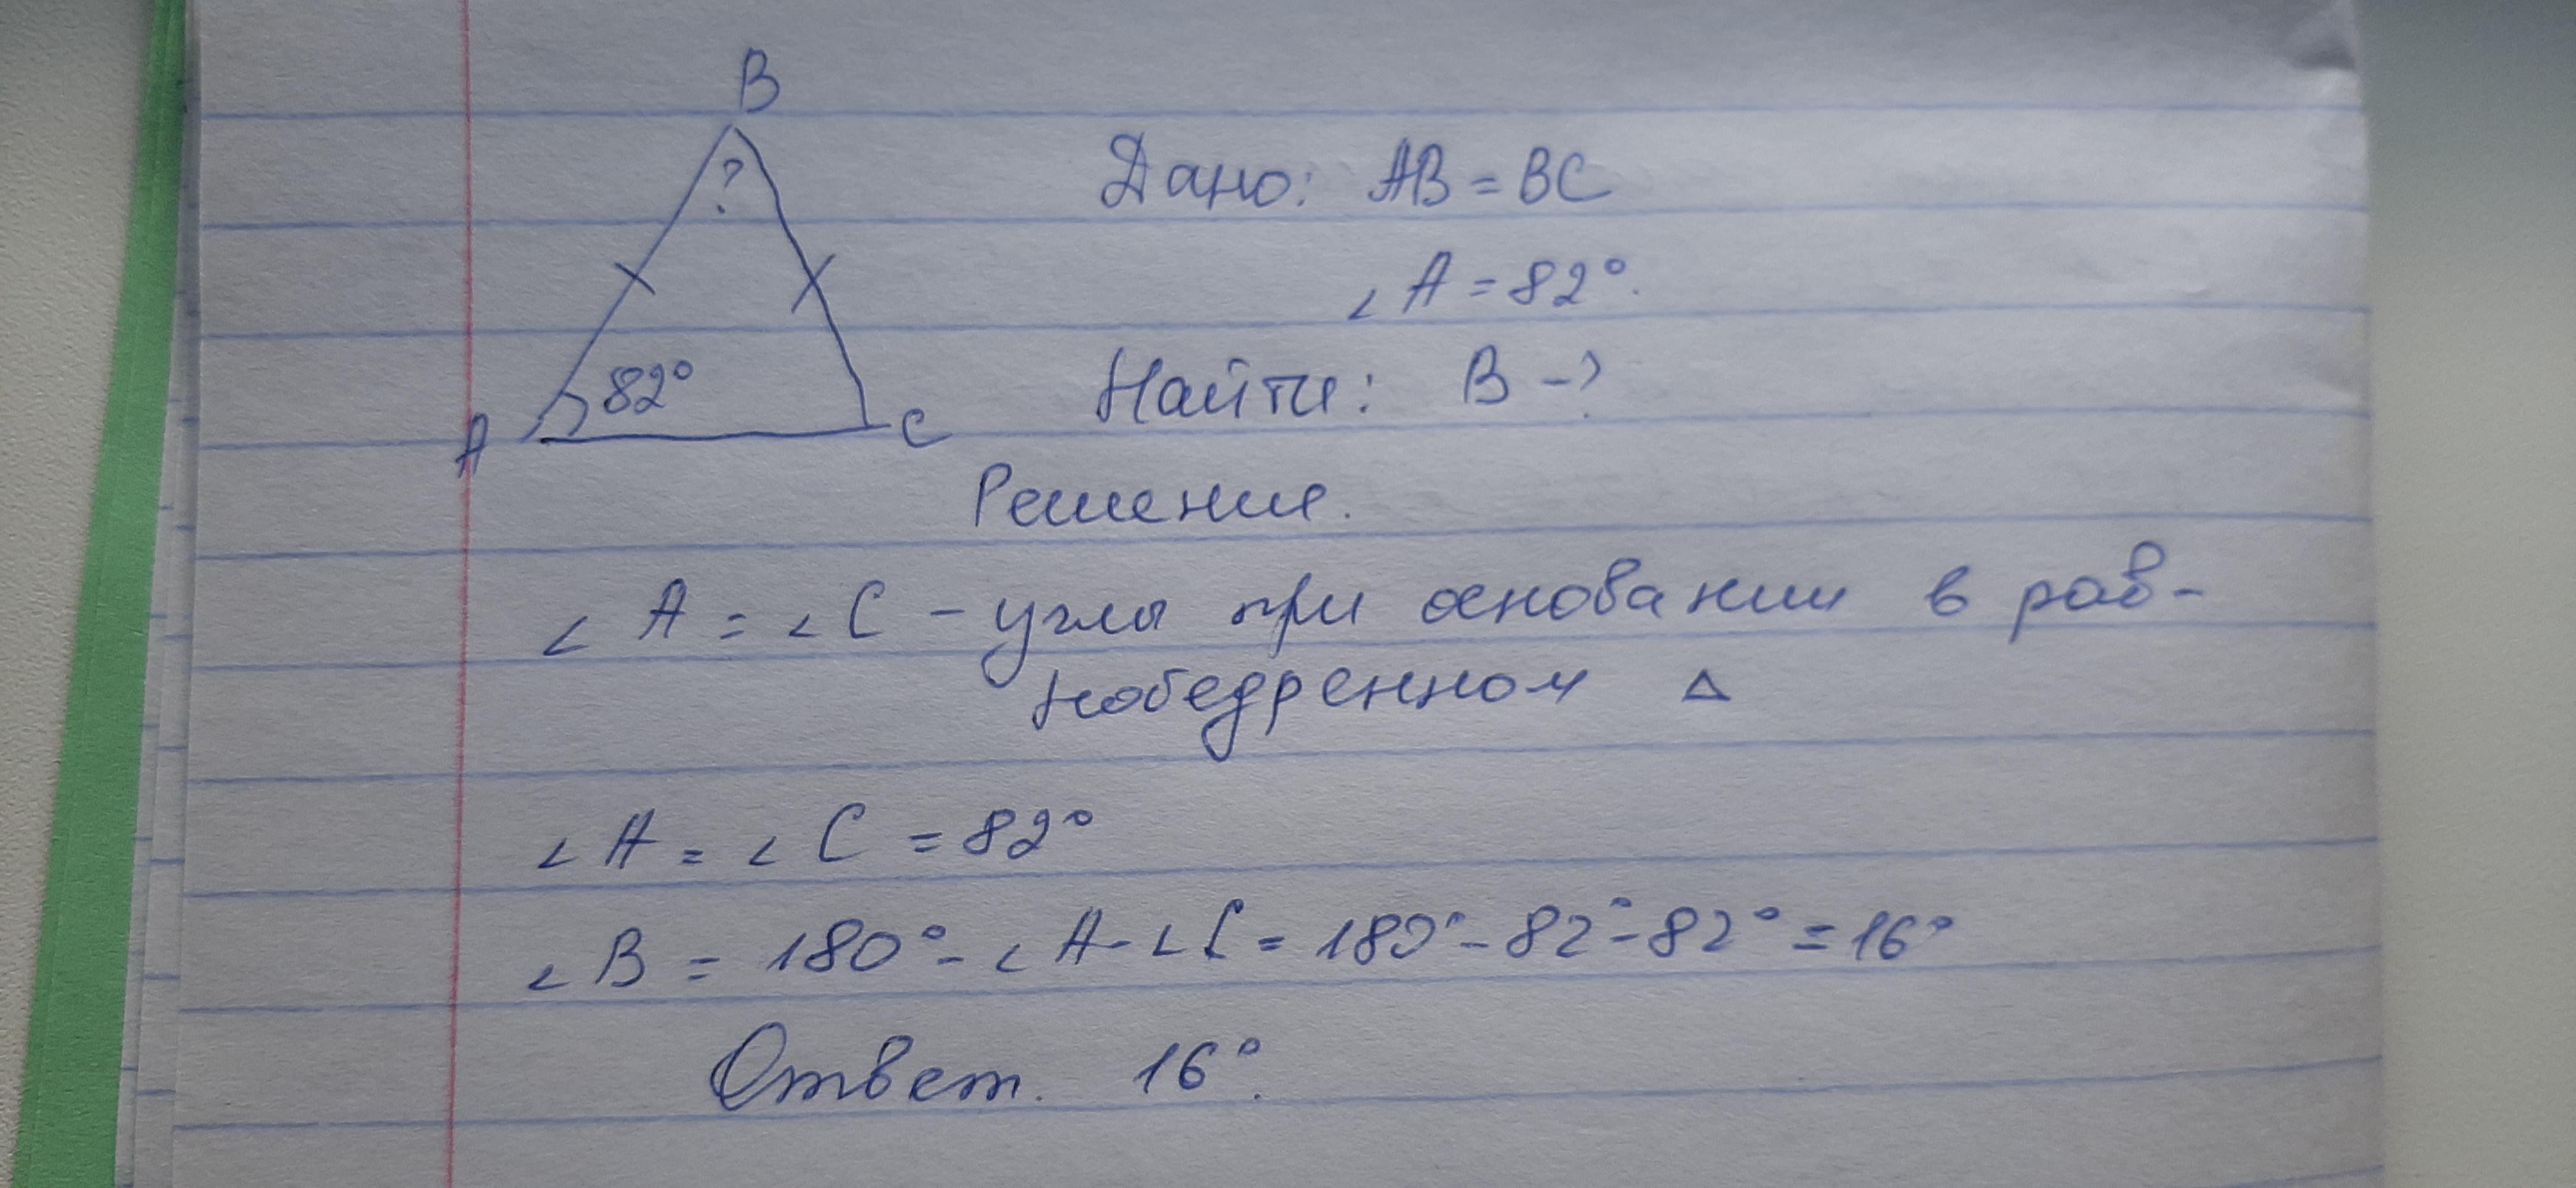 B
?
Дано: AB = BC
∠A = 82°.
82°
Найти: B - ?
A
C
Решение.
∠A = ∠C - углы при основании в рав-
нобедренном △
∠A = ∠C = 82°
∠B = 180° - ∠A - ∠C = 180° - 82° - 82° = 16°
Ответ. 16°.